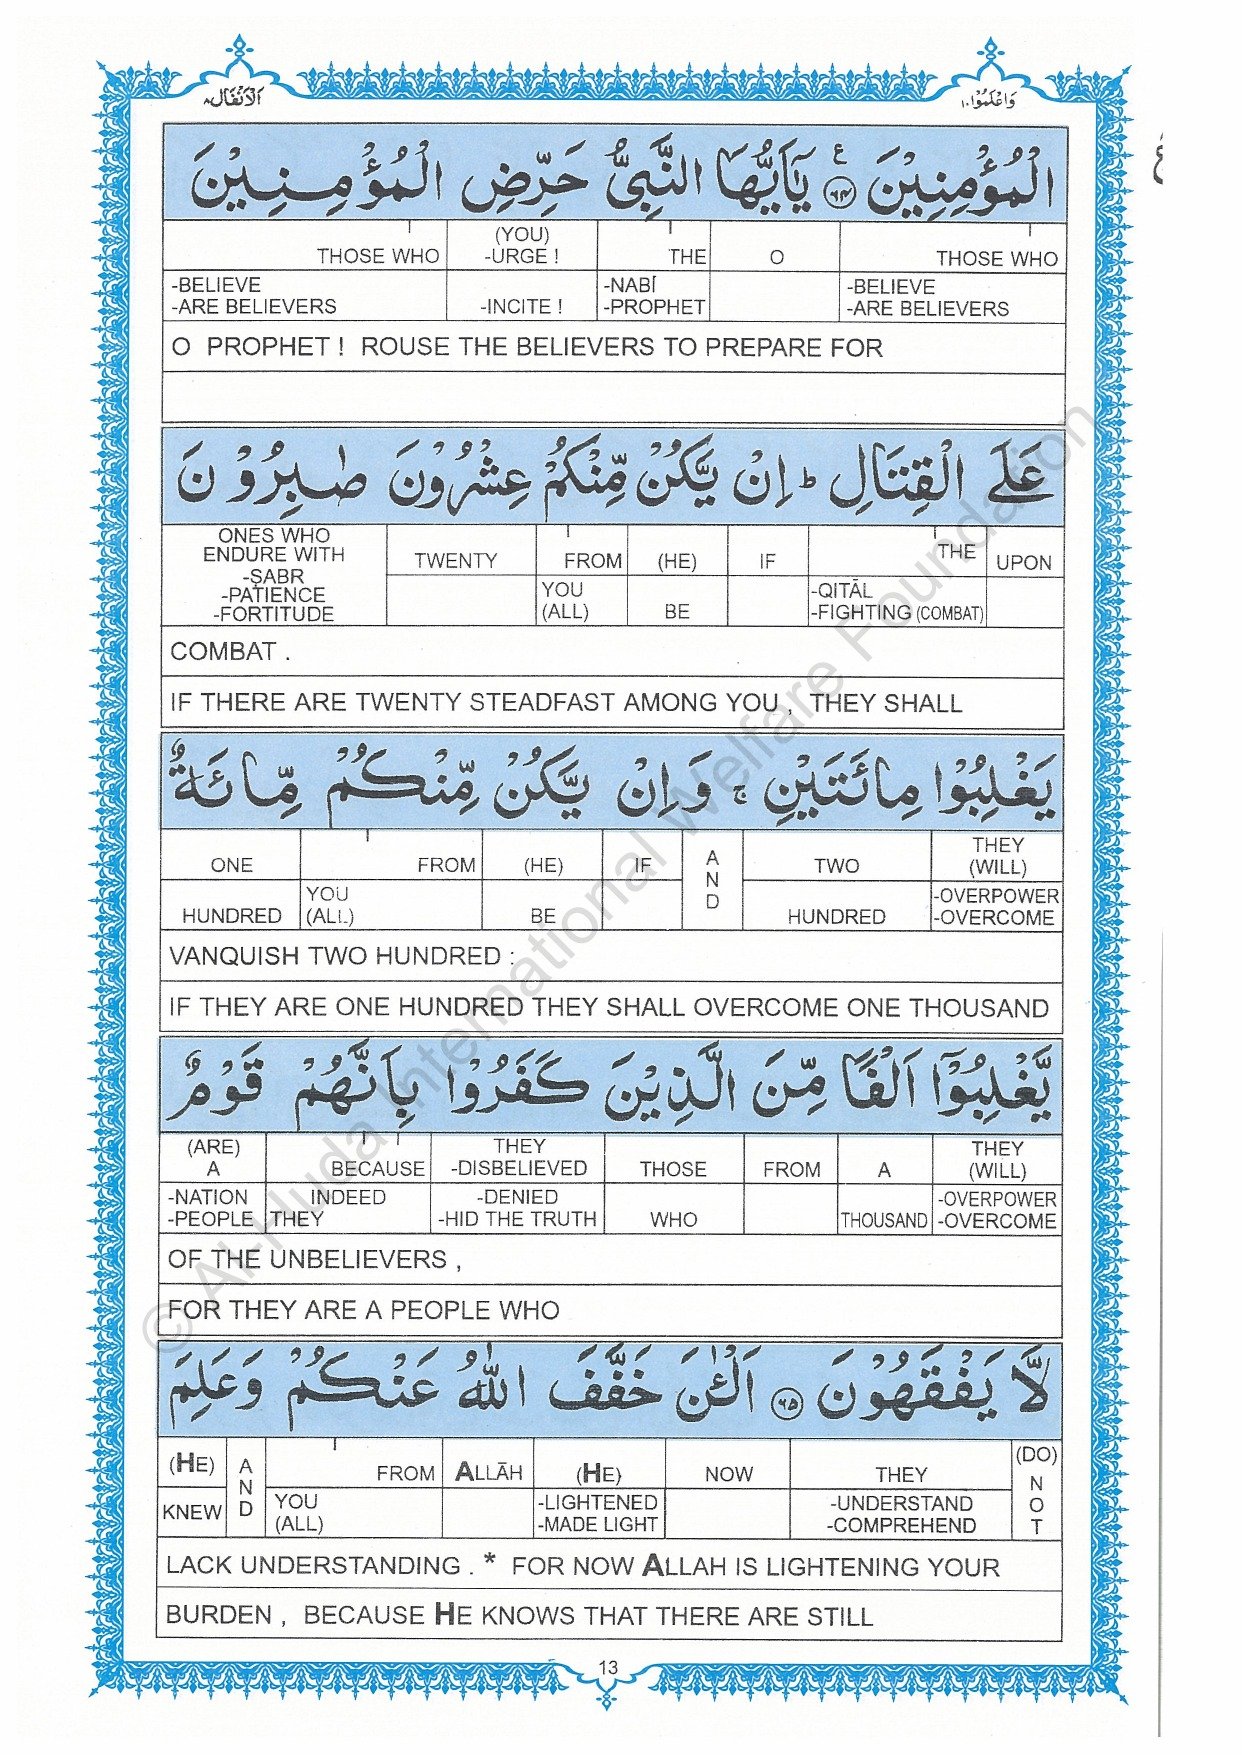 الانفال ٨
واعلموا ١٠
الْمُؤْمِنِيْنَ ﴿٦٤﴾ ع يٰۤاَيُّهَا النَّبِىُّ حَرِّضِ الْمُؤْمِنِيْنَ
THOSE WHO (YOU) -URGE ! THE O THOSE WHO
-BELIEVE -ARE BELIEVERS -INCITE ! -NABĪ -PROPHET -BELIEVE -ARE BELIEVERS
O PROPHET ! ROUSE THE BELIEVERS TO PREPARE FOR
عَلَى الْقِتَالِ ؕ اِنْ يَّكُنْ مِّنْكُمْ عِشْرُوْنَ صٰبِرُوْنَ
ONES WHO ENDURE WITH -SABR -PATIENCE -FORTITUDE TWENTY FROM (HE) IF THE UPON
YOU (ALL) BE -QITĀL -FIGHTING (COMBAT)
COMBAT .
IF THERE ARE TWENTY STEADFAST AMONG YOU , THEY SHALL
يَغْلِبُوْا مِائَتَيْنِ ۚ وَاِنْ يَّكُنْ مِّنْكُمْ مِّائَةٌ
ONE FROM (HE) IF AND TWO THEY (WILL)
HUNDRED YOU (ALL) BE HUNDRED -OVERPOWER -OVERCOME
VANQUISH TWO HUNDRED :
IF THEY ARE ONE HUNDRED THEY SHALL OVERCOME ONE THOUSAND
يَّغْلِبُوْۤا اَلْفًا مِّنَ الَّذِيْنَ كَفَرُوْا بِاَنَّهُمْ قَوْمٌ
(ARE) A BECAUSE THEY -DISBELIEVED THOSE FROM A THEY (WILL)
-NATION -PEOPLE INDEED THEY -DENIED -HID THE TRUTH WHO THOUSAND -OVERPOWER -OVERCOME
OF THE UNBELIEVERS ,
FOR THEY ARE A PEOPLE WHO
لَّا يَفْقَهُوْنَ ﴿٦٥﴾ اَلْـٰٔنَ خَفَّفَ اللّٰهُ عَنْكُمْ وَعَلِمَ
(HE) AND FROM ALLĀH (HE) NOW THEY (DO) NOT
KNEW YOU (ALL) -LIGHTENED -MADE LIGHT -UNDERSTAND -COMPREHEND
LACK UNDERSTANDING . * FOR NOW ALLAH IS LIGHTENING YOUR
BURDEN , BECAUSE HE KNOWS THAT THERE ARE STILL
13
© Al-Huda International Welfare Foundation